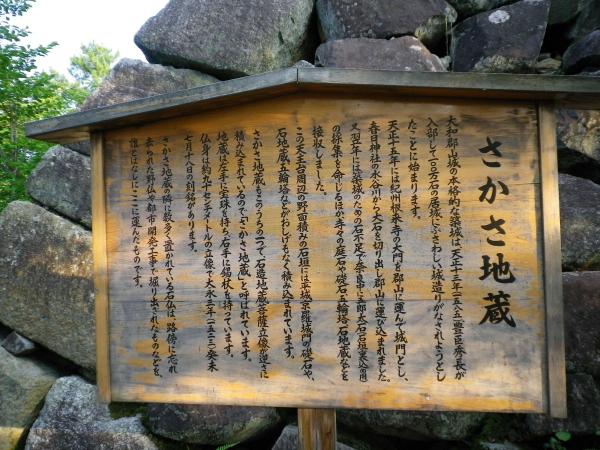 さかさ地蔵
大和郡山城の本格的な築城は、天正十三年(一五八五)豊臣秀長が
入部して一〇〇万石の居城にふさわしい城造りがなされようとし
たことに始まります。
天正十五年には紀州根来寺の大門を郡山に運んで城門とし、
春日神社の水谷川から大石を切り出し郡山に運び込まれました。
又翌年には築城のための石不足で奈良中に五郎太石
の採集を命じるほか寺々の庭石や礎石、五輪塔、石地蔵などを
接収しました。
この天守台周辺の野面積みの石垣には平城京羅城門の礎石や、
石地蔵、五輪塔などがおしげもなく積み込まれています。
さかさ地蔵もこのうちの一つで石造地蔵菩薩立像が逆さに
積み込まれているので「さかさ地蔵」と呼ばれています。
地蔵は左手に宝珠を持ち右手に錫杖を持っています。
仏身は約九十センチメートルの立像で大永三年(一五二三)癸未
七月十八日の刻銘があります。
さかさ地蔵の隣に数多く置かれている石仏は、路傍に忘れ
去られた野仏や都市開発工事で堀り出されたものなどを、
誰とはなしにここに運んだものです。